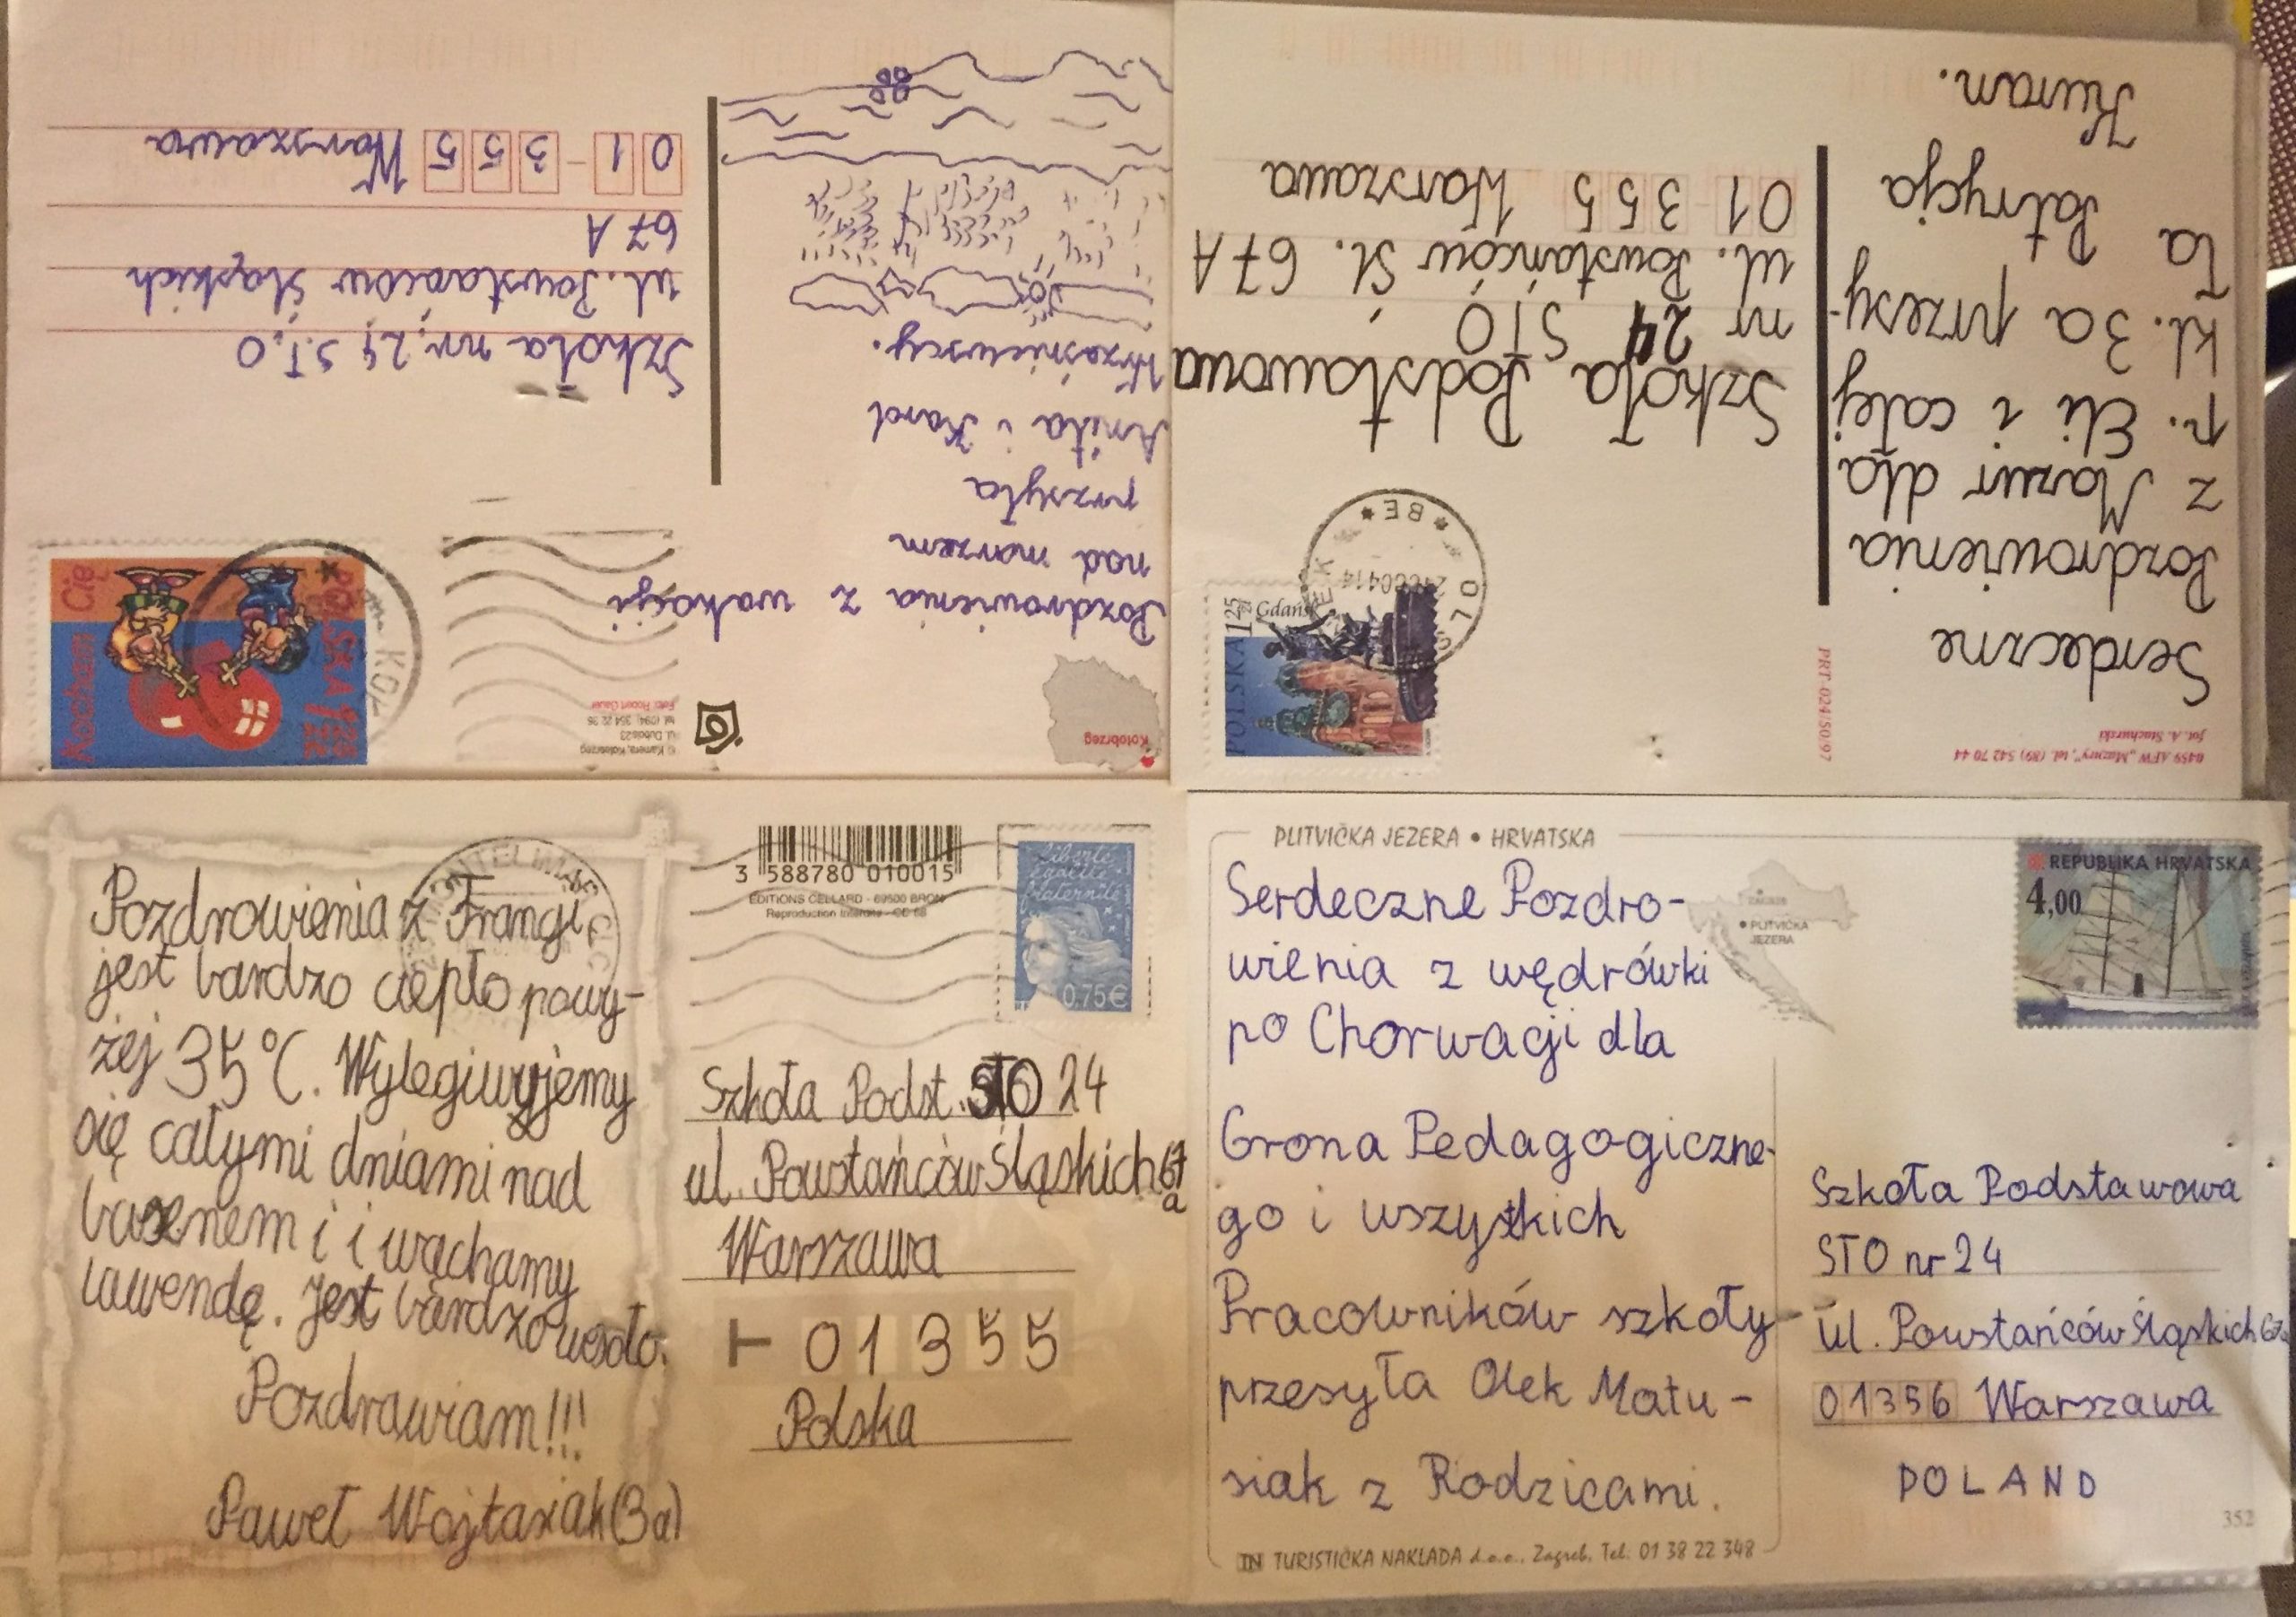 Kołobrzeg
© Kamera, Kołobrzeg
ul. Dubois 23
tel. (094) 354 22 36
Foto: Robert Gauer
Kocham Cię
POLSKA 1,25 ZŁ
KOŁ
Pozdrowienia z wakacji
nad morzem
przsyła
Anita i Karol
Wrześniewscy.
Szkoła nr, 24 S.T.O
ul. Powstańców Śląskich
67 A
01-355 Warszawa
0459 AFW „Mazury”, tel. (89) 542 70 44
fot. A. Stachurski
PRT-024/50/97
POLSKA 1,25 ZŁ
Gdańsk
* BE *
Serdeczne
Pozdrowienia
z Mazur dla
p. Eli i całej
kl. 3a przesy-
ła Patrycja
Kuran.
Szkoła Podstawowa
nr 24 STO
ul. Powstańców Śl. 67A
01 355 Warszawa
Pozdrowienia z Frangi,
jest bardzo ciepło powy-
żej 35°C. Wylegiwujemy
się całymi dniami nad
basenem i i wąchamy
lawendę. Jest bardzo wesoło.
Pozdrawiam!!!
Paweł Wojtasiak (3a)
3 588780 010015
EDITIONS CELLARD - 69500 BRON
Reproduction Interdite - CE 68
Liberté
égalité
fraternité
0,75€
Szkoła Podst. STO 24
ul. Powstańców Śląskich 67
a
Warszawa
01355
Polska
PLITVIČKA JEZERA • HRVATSKA
ZAGREB
PLITVIČKA
JEZERA
REPUBLIKA HRVATSKA
4,00
Serdeczne Pozdro-
wienia z wędrówki
po Chorwacji dla
Grona Pedagogiczne-
go i wszystkich
Pracowników szkoły
przesyła Olek Matu-
siak z Rodzicami.
Szkoła Podstawowa
STO nr 24
ul. Powstańców Śląskich 67a
01356 Warszawa
POLAND
352
TN TURISTIČKA NAKLADA d.o.o., Zagreb, Tel: 01 38 22 348